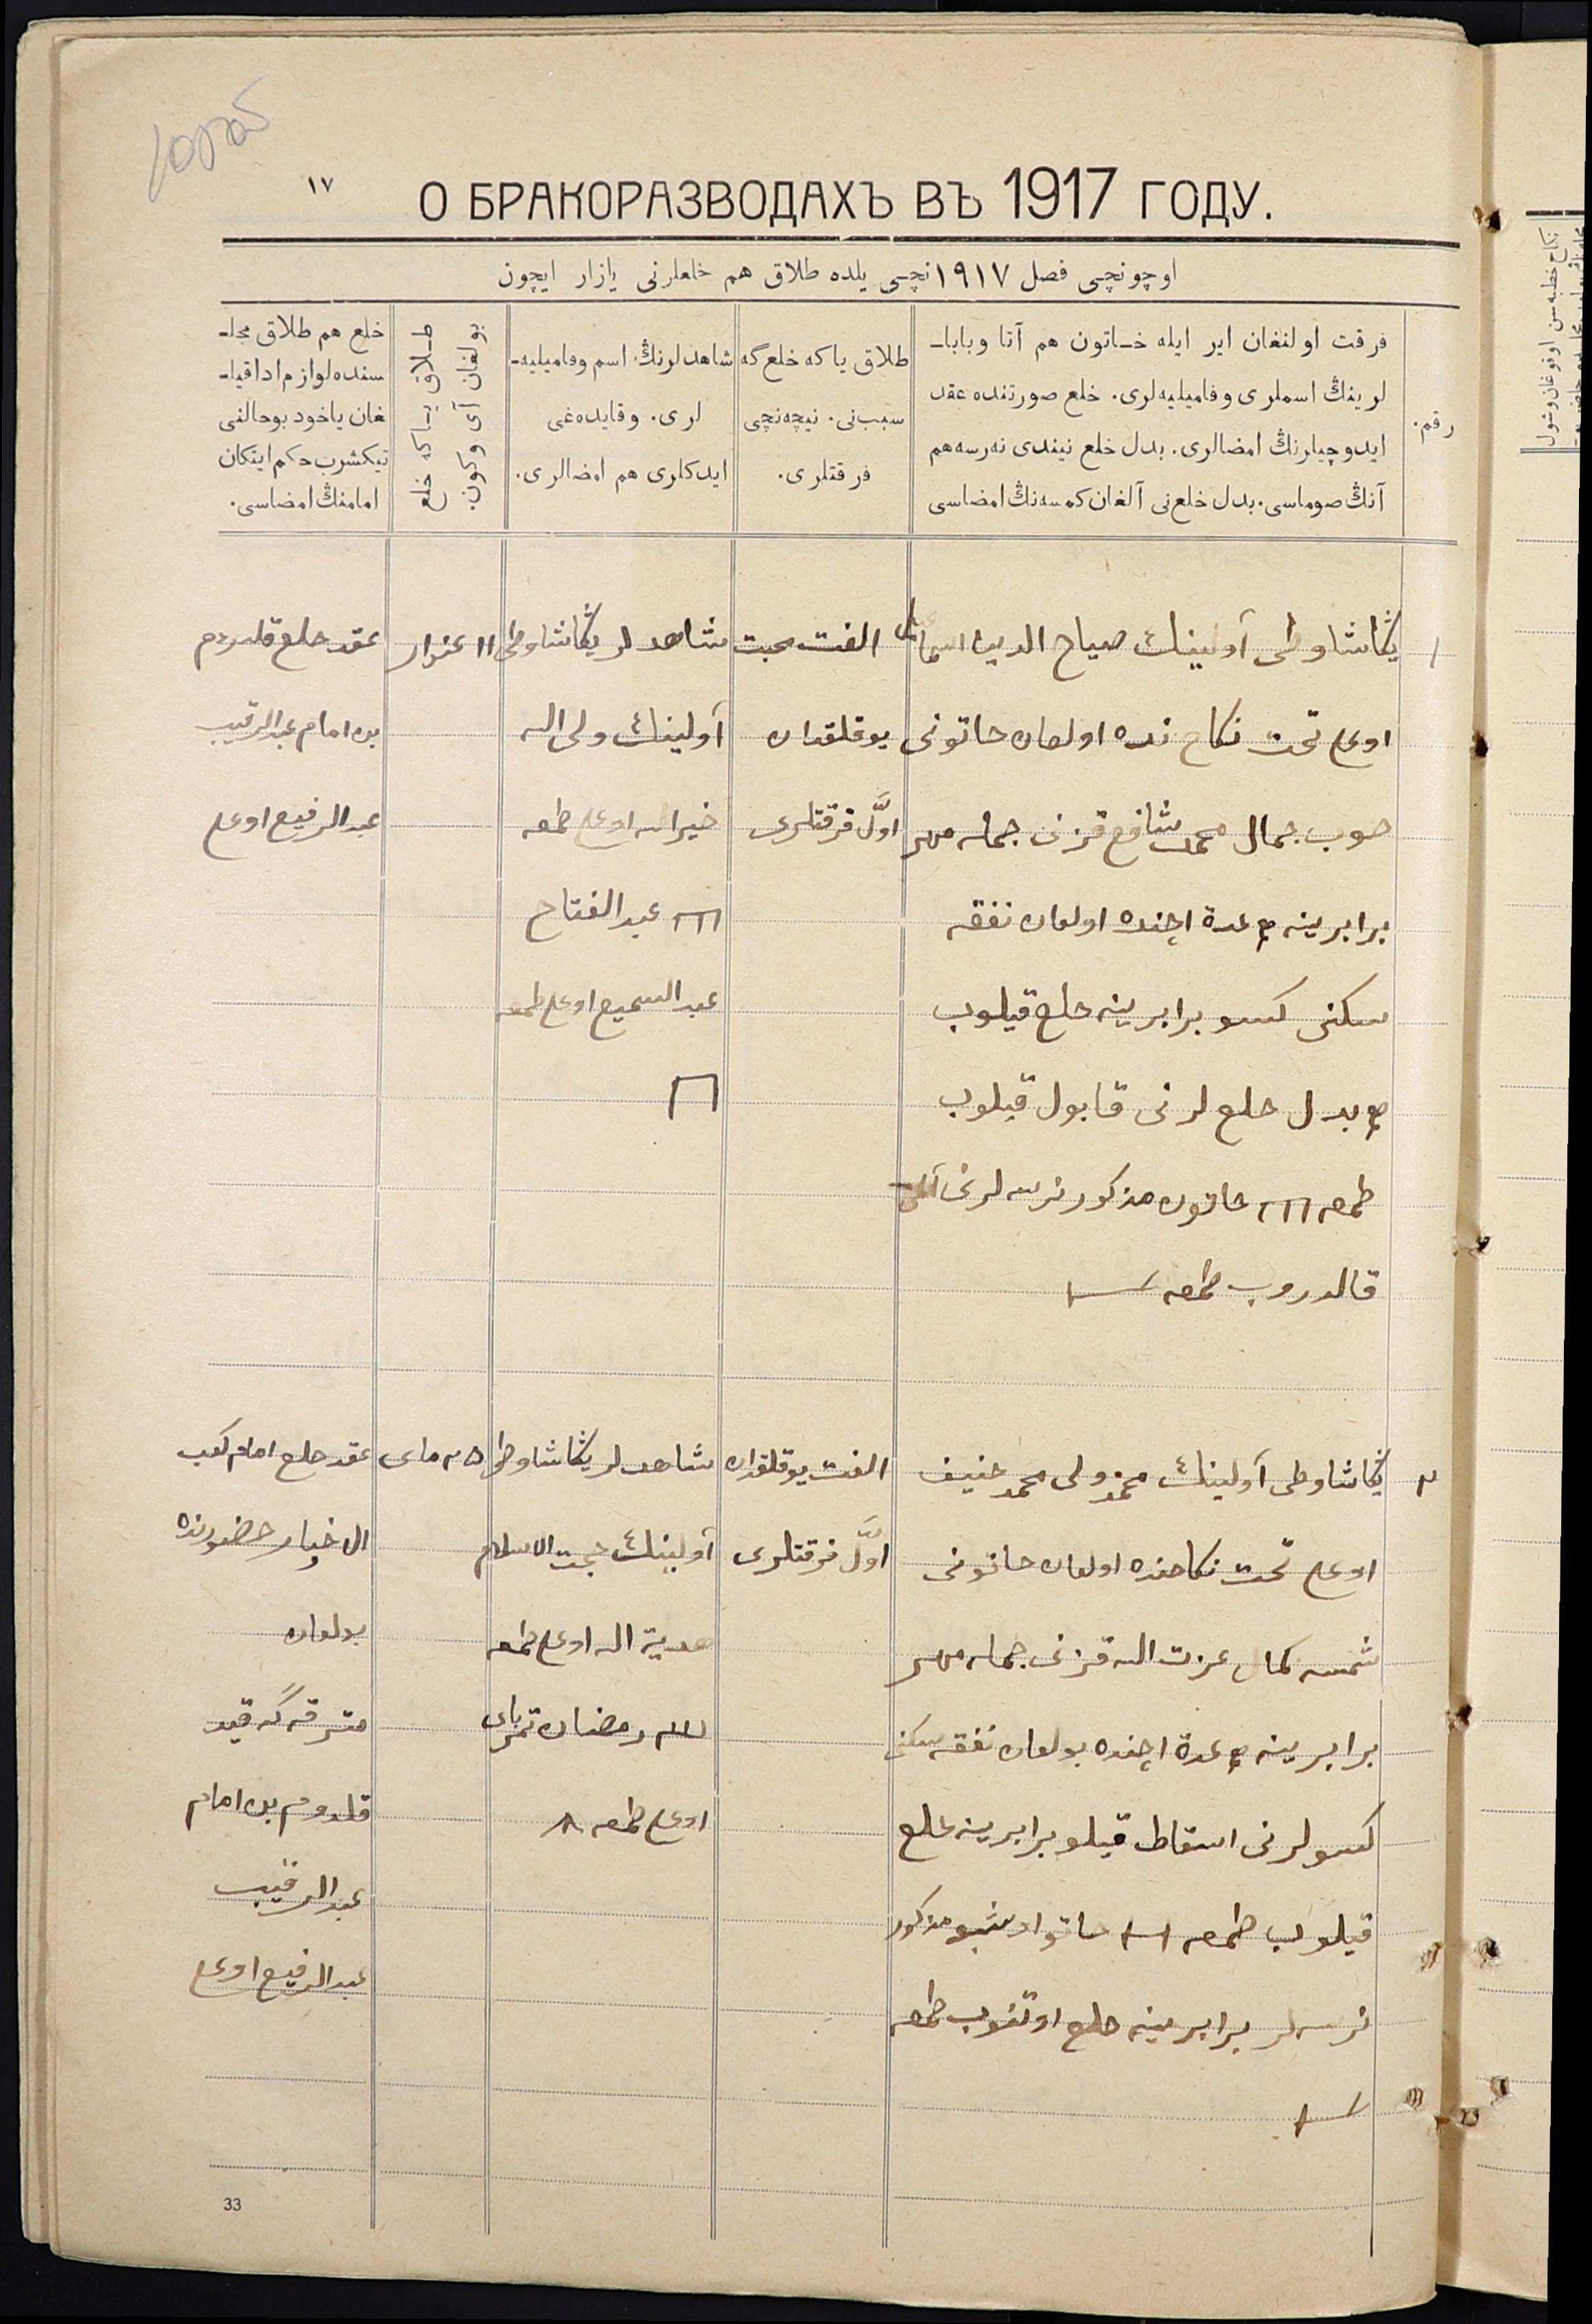 ١٧
О БРАКОРАЗВОДАХЪ ВЪ 1917 ГОДУ.
اوچونچی فصل ١٩١٧نچی یلده طلاق هم خلعلرنی یازار ایچون
رقم.
فرقت اولنغان ایر ایله خـاتون هم آتا وبابا‌ـ
لرینڭ اسملری وفامیلیه‌لری. خلع صورتنده عقد
ایدوچیلرنڭ امضالری. بدل خلع نیندی نه‌رسه هم
آنڭ صوماسی. بدل خلع‌نی آلغان کمسه‌نڭ امضاسی
طلاق یا که خلع گه
سبب نی. نیچه‌نچی
فرقتلری.
شاهدلرنڭ اسم وفامیلیه‌ـ
لری. وقایده‌غی
ایدکلری هم امضالری.
طـلاق یـاکه خلع
بولغان آی وکون.
خلع هم طلاق مجلـ
سنده لوازم ادا قیلـ
غان یاخود بوحالنی
تیکشرب حکم ایتکان
امامنڭ امضاسی.
١
یڭاشاوطی آولینڭ ضیاح الدین اسماعیل
اوغلی تحت نکاح نده اولغان خاتونی
حوب جمال محمدشافع قزنی جمله مهر
برابرینه هم عدة اچنده اولغان نفقه
سکنی کسو برابرینه خلع قیلوب
هم بدل خلع لرنی قابول قیلوب
طمغه خاتون مذکور نرسه لرنی
قالدروب طمغه
الفت محبت
یوقلقدان
اوّل فرقتلری
شاهدلر یڭاشاوطی
آولینڭ ولی الله
خیرالله اوغلی طمغه
عبدالفتاح
عبدالسمیع اوغلی طمغه
١١ غنوار
عقد خلع قلدردم
بن امام عبدالرقیب
عبدالرفیع اوغلی
٢
یڭاشاوطی آولینڭ محمدولی محمدحنیف
اوغلی تحت نکاحنده اولغان خاتونی
شمسه کمال عزت الله قزنی جمله مهر
برابرینه هم عدة اچنده بولغان نفقه سکنی
کسولرنی اسقاط قیلو برابرینه خلع
قیلوب طمغه خاتون اوشبو مذکور
نرسه‌لر برابرینه خلع اوتنوب طمغه
الفت یوقلقدان
اوّل فرقتلری
شاهدلر یڭاشاوطی
آولینڭ حجت الاسلام
هدیة الله اوغلی طمغه
رمضان تمربای
اوغلی طمغه
٢٥ مای
عقد خلع امام
حضورنده
بولغان
متریقه گه قید
قلدوم بن امام
عبدالرقیب
عبدالرفیع اوغلی
33